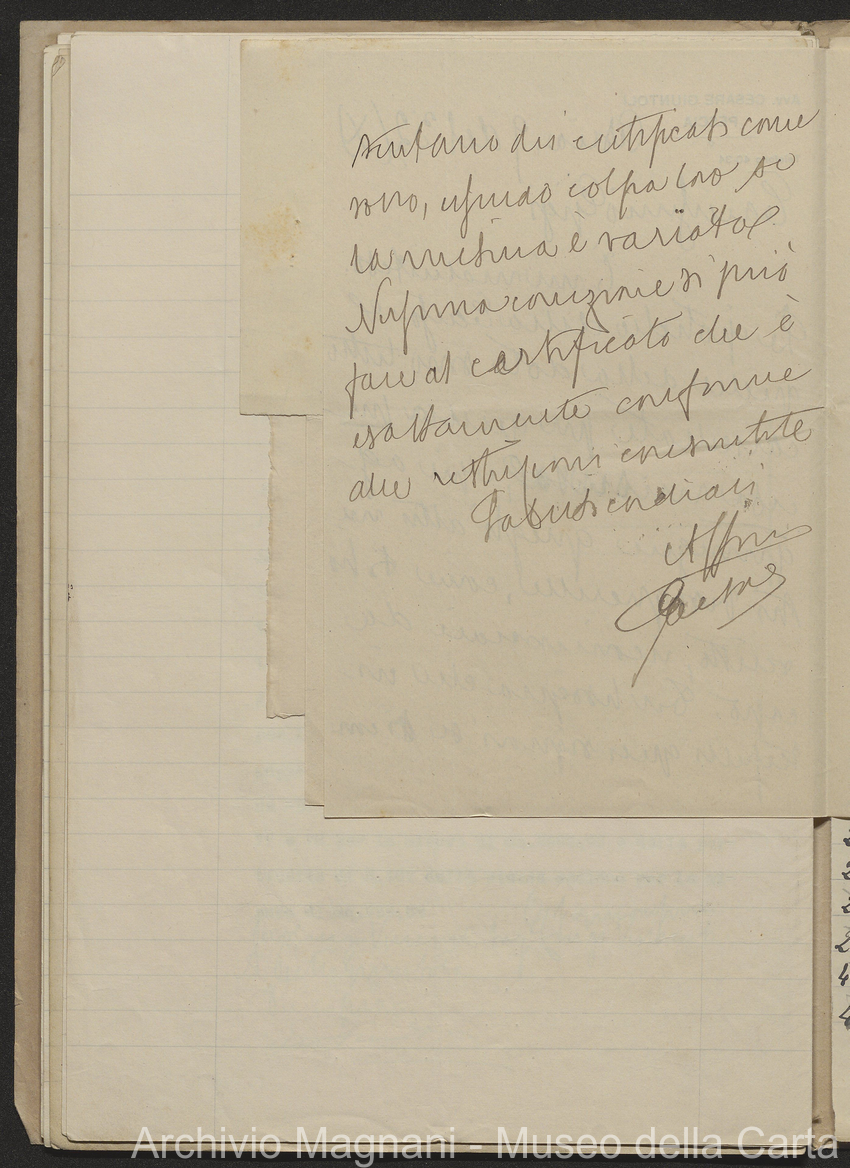 sentano dei certificati come
sono, essendo colpa loro se
la misura è variata.
Nessuna correzione si può
fare al certificato che è
esattamente conforme
alle
Saluti cordiali
Affmo
Archivio Magnani - Museo della Carta